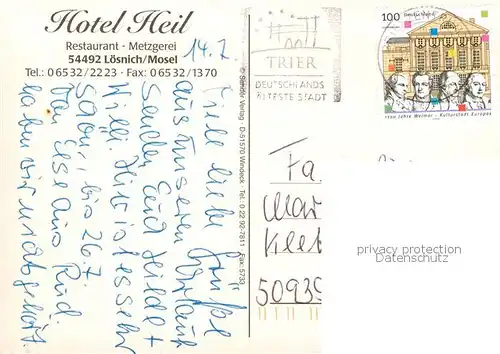 Hotel Heil
Restaurant · Metzgerei
54492 Lösnich/Mosel
Tel.: 0 65 32/22 23 · Fax: 0 65 32/13 70
14.7.
Viele liebe Grüße
aus unserem Urlaub
senden Euch Hilde +
Willi. Hier ist es sehr
schön, bis 26.7.
von Else aus
haben wir
© Sander Verlag D-51570 Windeck Tel.: 0 22 92-7811 Fax: 5733
TRIER
DEUTSCHLANDS
ÄLTESTE STADT
100
Deutschland
1100 Jahre Weimar - Kulturstadt Europas
Fa
50939
privacy protection
Datenschutz